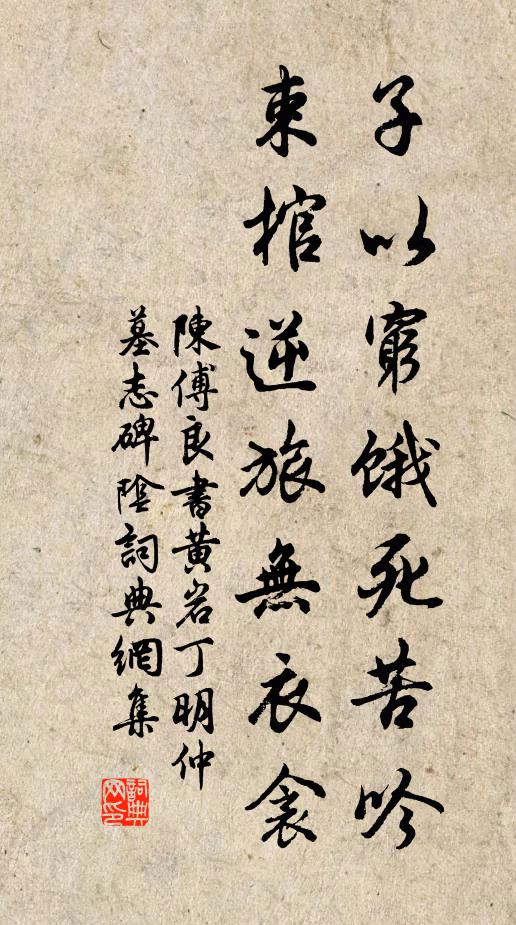 子以窮餓死苦吟
束棺逆旅無衣衾
陳傅良書黄岩丁明仲
墓志碑陰詞典網集
詞典
网印